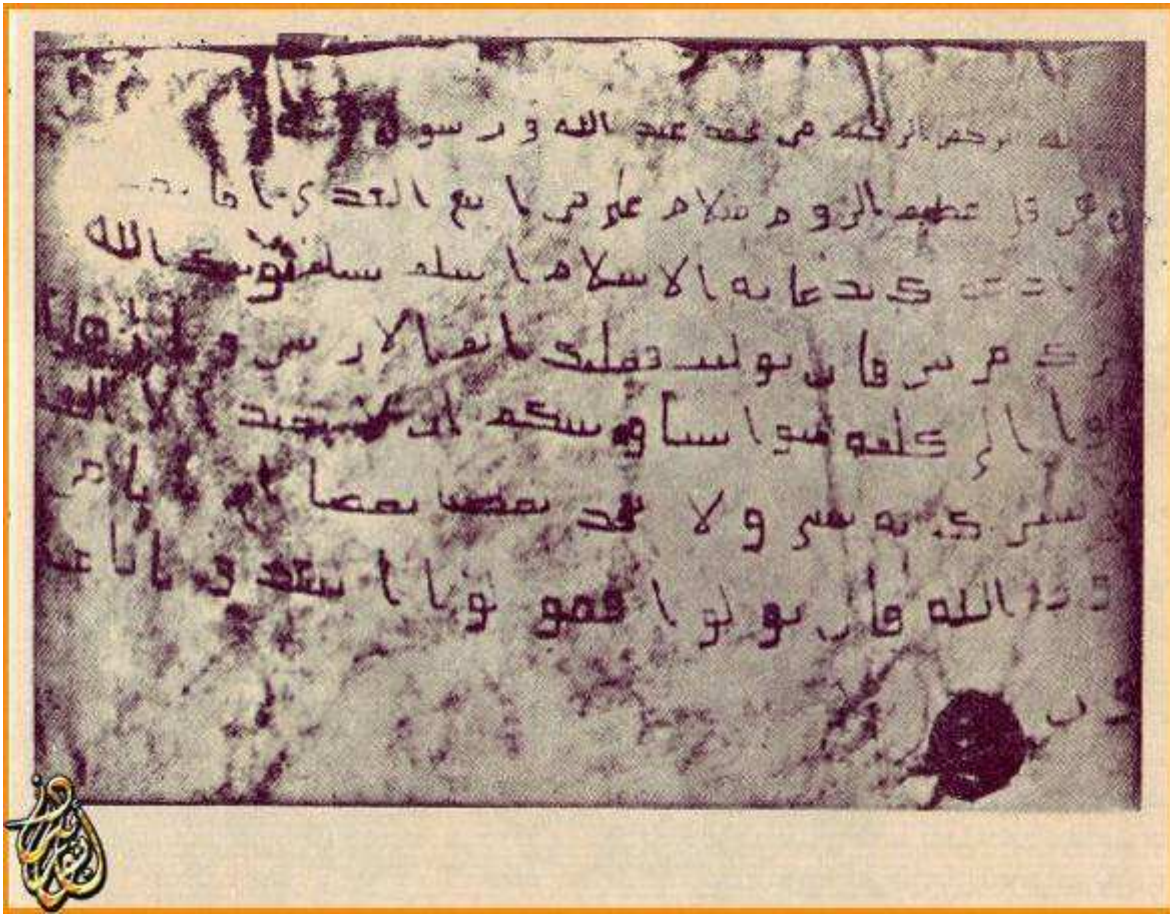 الله الرحمن الرحيم من محمد عبد الله و رسوله
هرقل عظيم الروم سلام على من اتبع الهدى اما بعد
بدعاية الاسلام اسلم تسلم يوتك الله
مرتين فان توليت فعليك اثم الاريسيين
الى كلمة سوا بيننا وبينكم الا نعبد الا الله
نشرك به شيا ولا يتخذ بعضنا بعضا اربابا من
دون الله فان تولوا فقولوا اشهدوا بانا